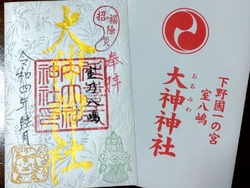 奉拝
大神神社
室乃八嶋
令和四年睦月
下野國一の宮
室八嶋
おおみわ
大神神社